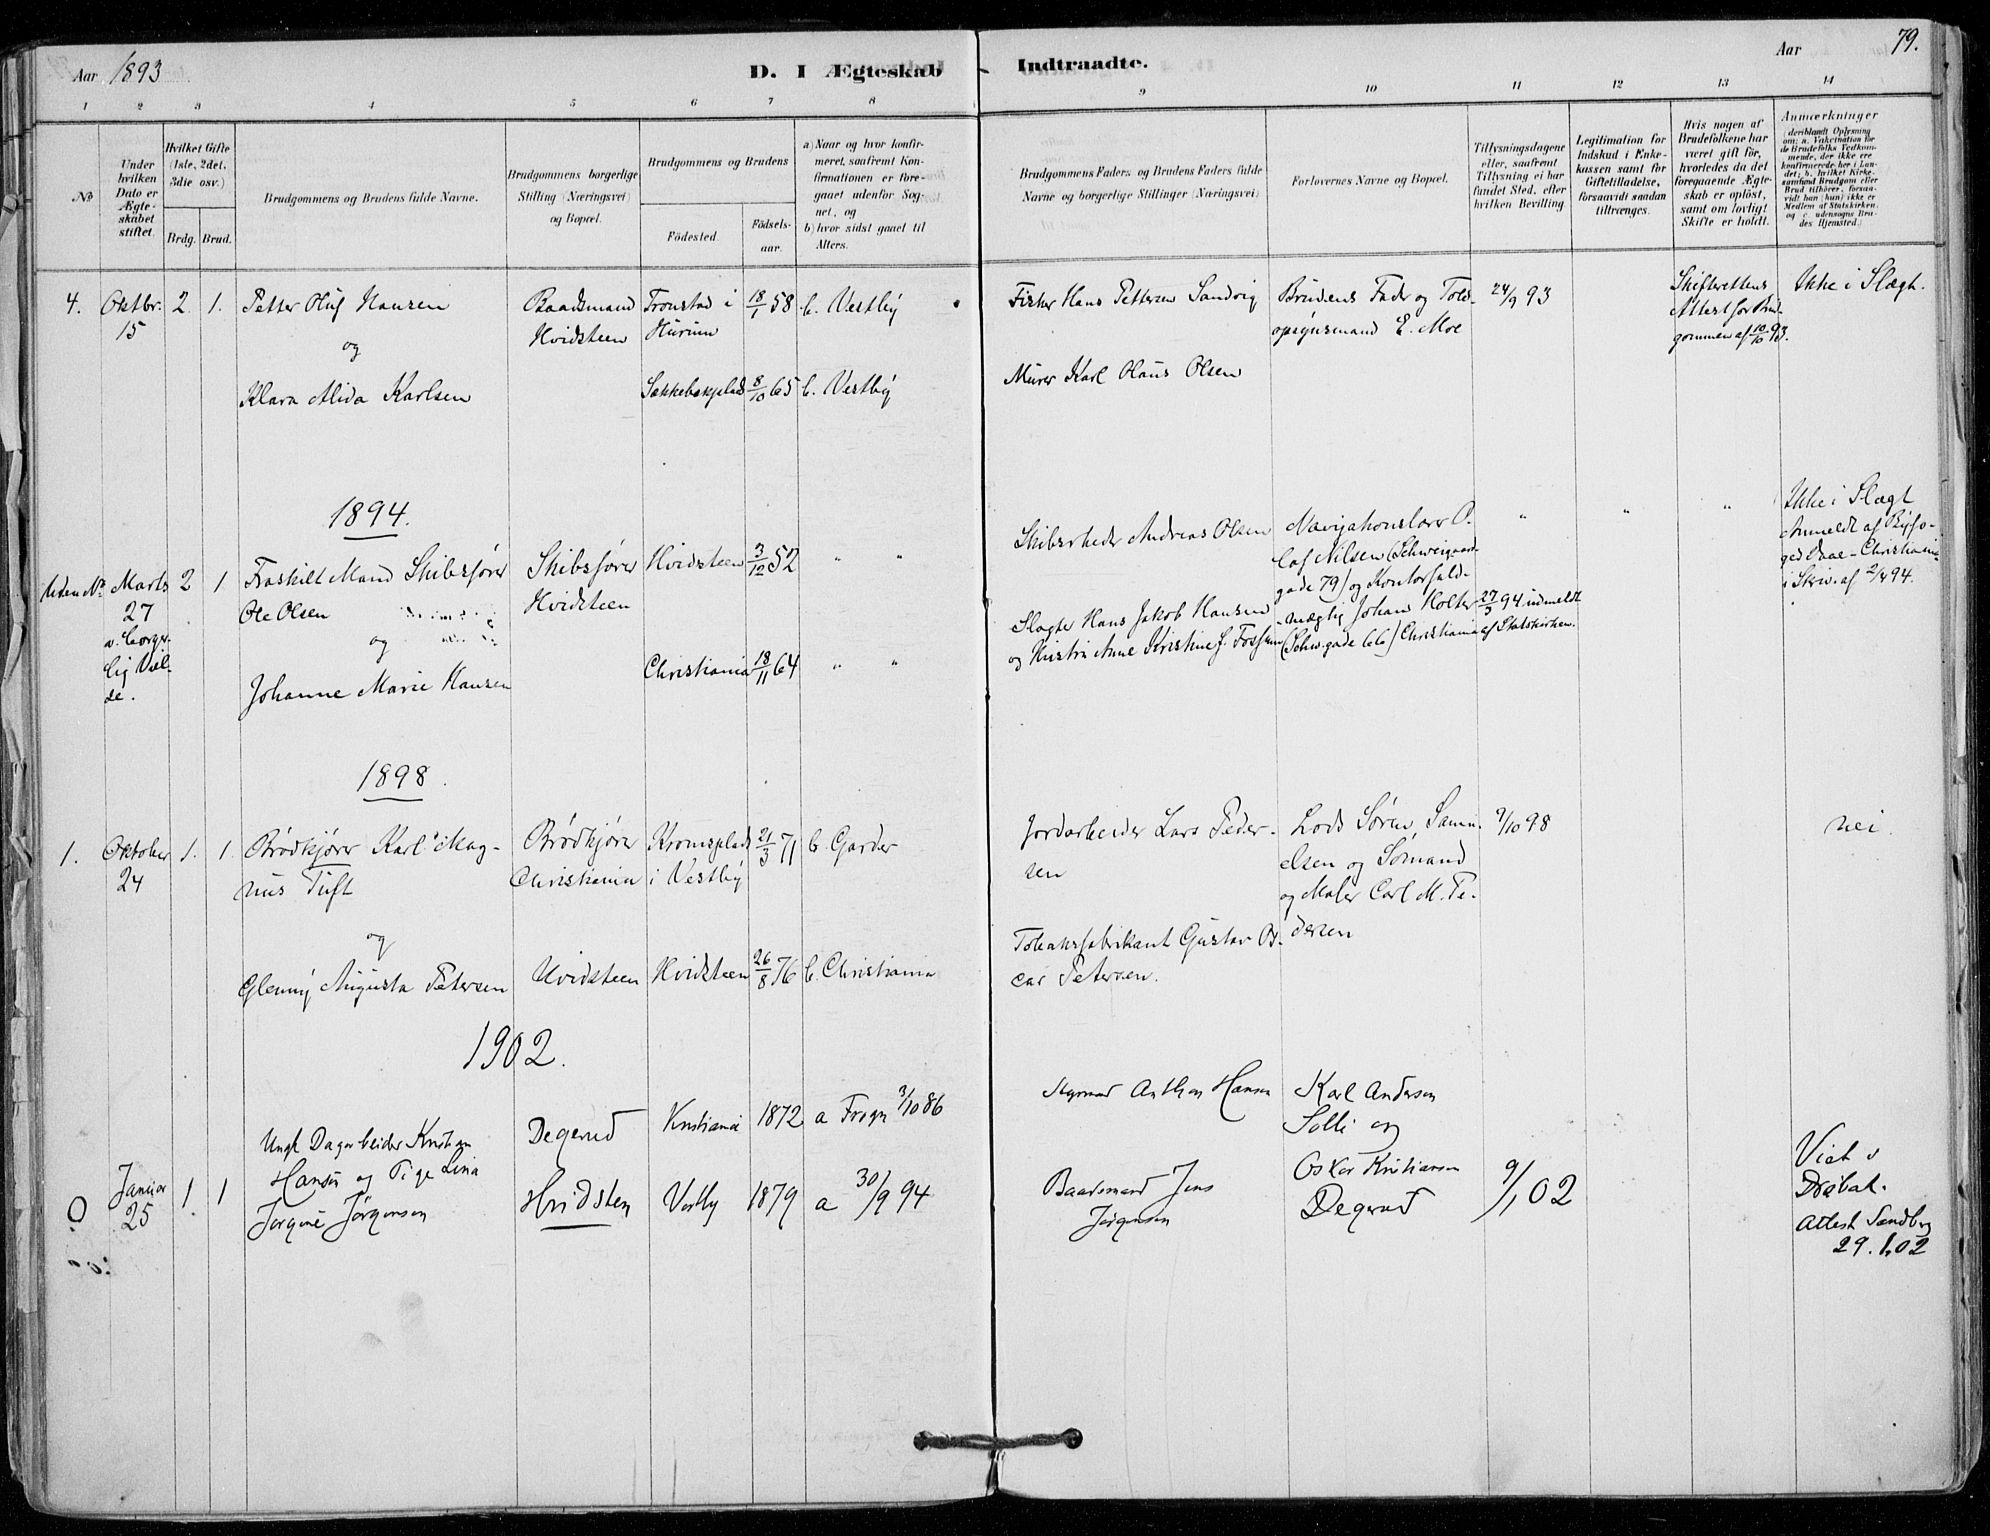 Aar 1893
D. I Ægteskab Indtraadte.
Aar
79.
1 2 3 4 5 6 7 8 9 10 11 12 13 14
No
Under hvilken Dato er Ægteskabet stiftet.
Hvilket Gifte (1ste, 2det, 3die osv.)
Brdg. Brud.
Brudgommens og Brudens fulde Navne.
Brudgommens borgerlige Stilling (Næringsvei) og Bopæl.
Brudgommens og Brudens
Födested.
Födselsaar.
a) Naar og hvor konfirmeret, saafremt Konfirmationen er foregaaet udenfor Sognet, og
b) hvor sidst gaaet til Alters.
Brudgommens Faders og Brudens Faders fulde Navne og borgerlige Stillinger (Næringsvei)
Forlovernes Navne og Bopæl.
Tillysningsdagene eller, saafremt Tillysning ei har fundet Sted, efter hvilken Bevilling.
Legitimation for Indskud i Enkekassen samt for Giftetilladelse, forsaavidt saadan tiltrænges.
Hvis nogen af Brudefolkene har været gift för, hvorledes da det foregaaende Ægteskab er oplöst, samt om lovligt Skifte er holdt.
Anmærkninger
(deriblandt Oplysning om: a. Vakcination for de Brudefolks Vedkommende, der ikke ere konfirmerede her i Landet; b. hvilket Kirkesamfund Brudgom eller Brud tilhörer, forsaavidt han (hun) ikke er Medlem af Statskirken, og c. udensogns Brudes Hjemsted.)
4. Oktbr. 15 2. 1.
Petter Hüf Hansen
og
Klara Alida Karlsen
Baadsmand
Hvidsteen
Tronstad i
Hurum
18/1 58
b. Vestby
Sækkebækplads 8/10 65 b. Vestby
Fisker Hans Pettersen Sandvig
Murer Karl Olaus Olsen
Brudens Fader og Told-
opsynsmand E. Moe
24/9 93
Skifterettens
Attest for Brud-
gommen af 10/10 93.
Ikke i Slægt.
1894.
Uden No Marts 27 v. borger-
lig Viel-
se.
2 1
Fraskilt Mand Skibsfører
Ole Olsen
og
Johanne Marie Hansen
Skibsfører
Hvidsteen
Hvidsteen 3/12 52 " "
Christiania 18/11 64 " "
Skibsrheder Andreas Olsen
Slagter Hans Jakob Hansen
og Hustru Anne Kristine f. Fossum
Navigationslærer O-
laf Nilsen (Schweigaards-
gade 79) og Kontorfuld-
mægtig Johan Holter
(Schw.gade 66) Christiania
"
27/3 94 indmeldt
af Statskirken.
" "
Ikke i Slægt
Anmeldt af Byfo-
ged Christiania
i Skriv. af 2/4 94.
1898.
1. Oktober 24 1. 1.
Brødkjører Karl Mag-
nus Tuft
og
Glenny Augusta Petersen
Brødkjører
Christiania
Hvidsteen
Kromsplads
i Vestby
21/3 71
b. Garder
Hvidsteen 26/8 76 b. Christiania
Jordarbeider Lars Peder-
sen
Tobaksfabrikant Gustav Os-
car Petersen.
Lods Søren Samu-
elsen og Sömand
og Maler Carl M. Pe-
dersen
9/10 98
nei.
1902.
0 Januar 25 1. 1
Ungk. Dagarbeider Kristian
Hansen og Pige Lina
Jørgine Jørgensen
Degerud
Hvidsten
Kristiania 1872 a Frogn 3/10 86
Vestby 1879 a 30/9 94
Styrmand Anthon Hansen
Baadsmand Jens
Jørgensen
Karl Andersen
Solli og
Oskar Kristiansen
Degerud
9/1 02
Viet i
Drøbak.
Attest Sandberg
29.1.02